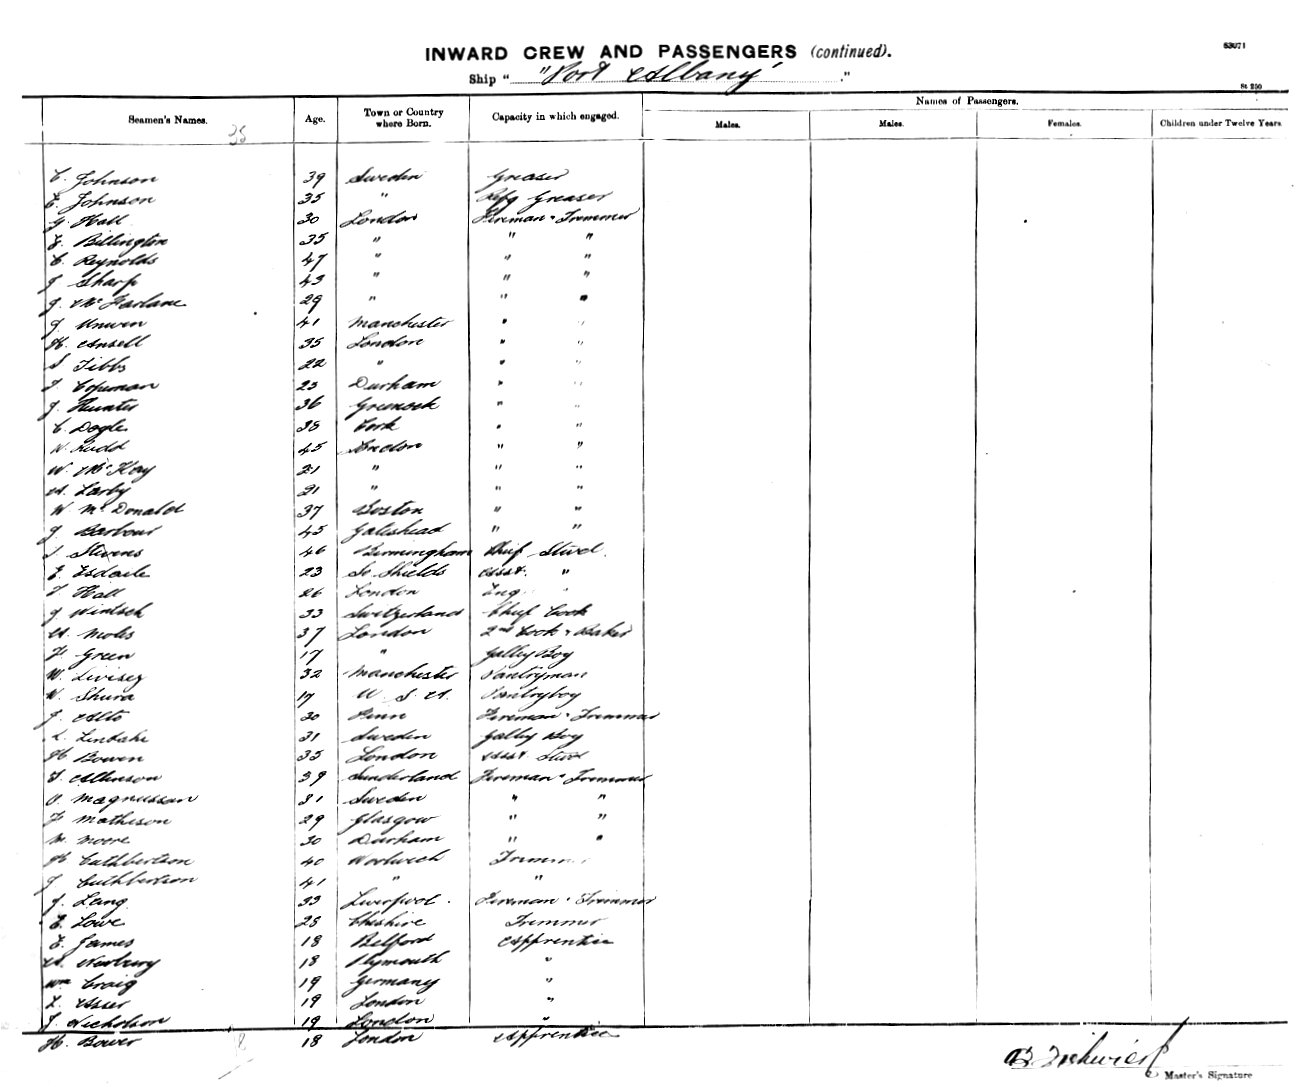 63071
INWARD CREW AND PASSENGERS (continued).
Ship " "Port Albany" "
St 250
Seamen's Names. Age. Town or Country where Born. Capacity in which engaged. Names of Passengers.
Males. Males. Females. Children under Twelve Years.
38
C. Johnson 39 Sweden Greaser
E. Johnson 35 " Refg Greaser
G. Hall 30 London Fireman & Trimmer
E. Billington 35 " " "
C. Reynolds 47 " " "
J. Sharp 43 " " "
J. McFarlane 29 " " "
J. Unwin 41 Manchester " "
H. Ansell 35 London " "
S Tibbs 22 " " "
T. Copeman 23 Durham " "
J. Hunter 36 Greenock " "
C. Dogle 38 Cork " "
W. Rudd 45 London " "
W. McKay 21 " " "
A. Larby 21 " " "
W McDonald 37 Boston " "
J. Barbour 45 Gateshead " "
S. Stevens 46 Birmingham Chief Stwd.
E. Esdaile 23 So Shields Asst. "
T. Hall 26 London Eng "
J. Wintsch 33 Switzerland Chief Cook
A. Moles 37 London 2nd Cook & Baker
F. Green 17 " Galley Boy
W. Livisey 32 Manchester Pantryman
W. Shura 17 U. S. A. Pantryboy
J. Alto 30 Finn Fireman & Trimmer
L. 31 Sweden Galley Boy
H Bowen 35 London Asst. Stwd
T. Atkinson 39 Sunderland Fireman & Trimmer
O. Magnussan 31 Sweden " "
F Mathison 29 Glasgow " "
M. Moore 30 Durham " "
H Cuthbertson 40 Woolwich Trimmer
J Cuthbertson 41 " "
J. Lang 33 Liverpool. Fireman & Trimmer
E. Lowe 28 Cheshire Trimmer
E. James 18 Belford Apprentice
A. Newbury 18 Plymouth "
Wm Craig 19 Germany "
L. Asser 19 London "
J. Nicholson 19 London "
H. Bower 18 London Apprentice
Master's Signature